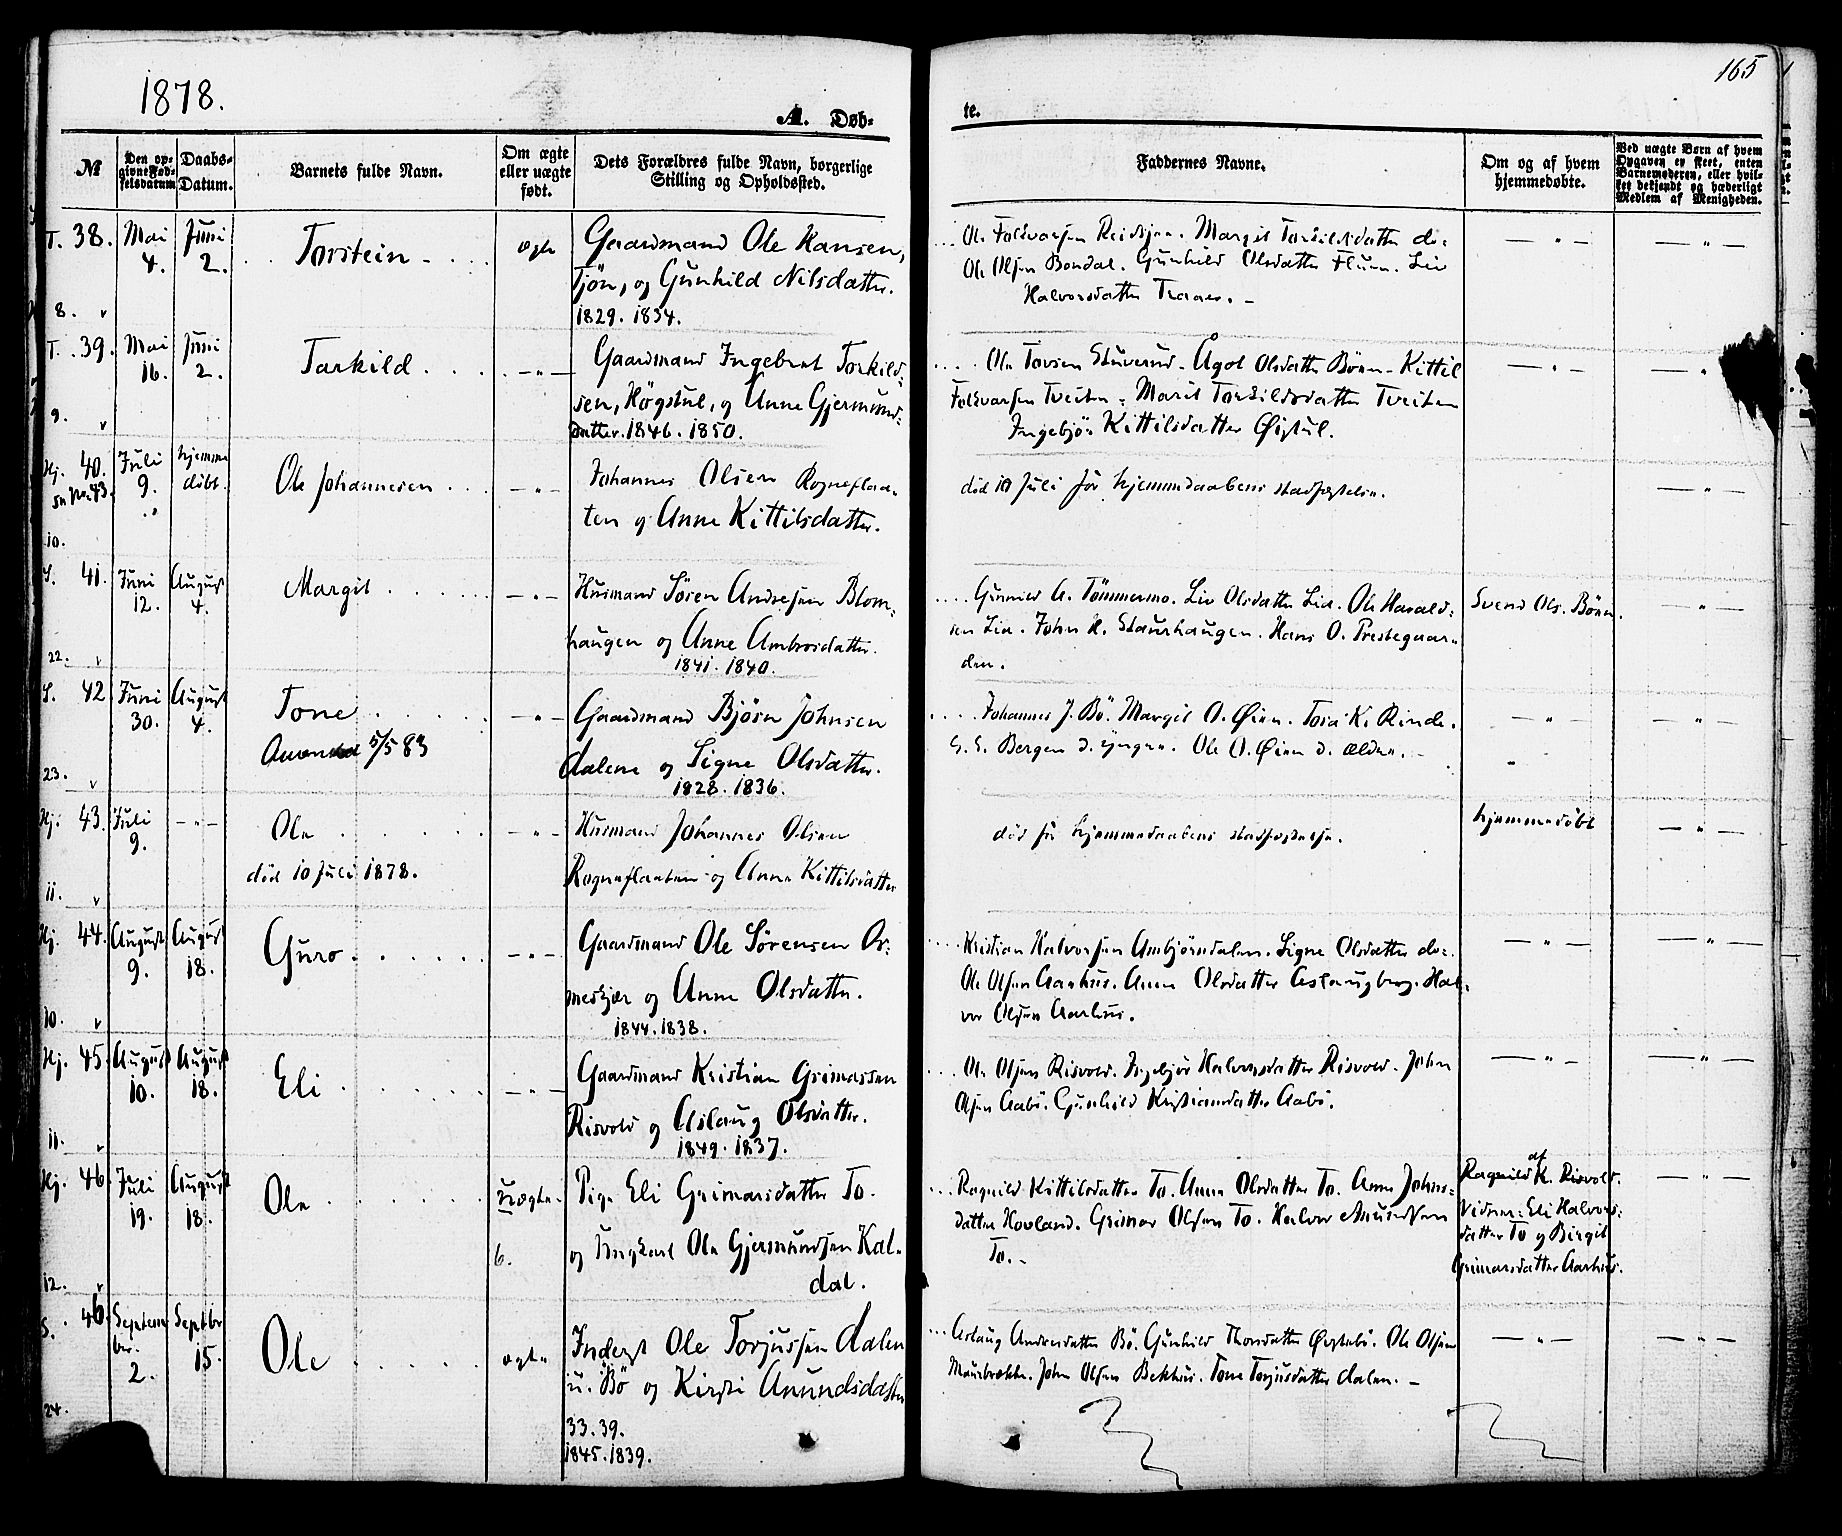 1878.
165
A. Døb-
te.
№
Den op-
givne Fød-
selsdatum
Daabs-
Datum.
Barnets fulde Navn.
Om ægte
eller uægte
født.
Dets Forældres fulde Navn, borgerlige
Stilling og Opholdssted.
Faddernes Navne.
Om og af hvem
hjemmedøbte.
Ved uægte Børn af hvem
Opgaven er skeet, enten
Barnemoderen, eller hvil-
ket bekjendt og hæderligt
Medlem af Menigheden.
T. 38. Mai Juni
4. 2.
8. v
Torstein
ægte
Gaardmand Ole Hansen,
Tjön, og Gunhild Nilsdatter.
1829. 1834.
Ole Folkvarsen Margit Torkildsdatter do:
Ole Olsen Bondal. Gunhild Olsdatter Liv
Halvorsdatter Traaer. -
— " —
— " —
T. 39. Mai Juni
16. 2.
9. v
Tarkild
— " —
Gaardmand Ingebret Torkild-
sen, Høgstul, og Anne Gjermund-
datter. 1846. 1850.
Ole Tovsen Stuverud. Ågot Olsdatter Böen - Kittil
Folkvarsen Tveiten - Marit Torkildsdatter Tveiten
Ingebjör Kittilsdatter Øistul.
— " —
— "
Hj. 40. Juli hjemme
9. döbt.
10.
Ole Johannesen
— " —
Johannes Olsen Rogneflaa-
ten og Anne Kittilsdatter.
död 10 Juli för hjemmedaabens stadfæstelse.
— " —
S. 41. Juni August
12. 4.
22. v
Margit
— " —
Husmand Sören Andresen Blom-
haugen og Anne Ambrosdatter.
1841. 1840.
Gunnild A. Tömmermo. Liv Olsdatter Lia. Ole Harald-
sen Lia. John H. Staurhaugen. Hans O. Prestegaar-
den.
Svend Ols. Böen.
— " —
S. 42 Juni August
30. 4.
23. v
Tone
5/5 83
— " —
Gaardmand Bjørn Johnsen
Dalene og Signe Olsdatter.
1828. 1836.
Johannes J. Bö. Margit O. Øien. Tora K. Rinde.
G. E. Bergen d. yngre. Ole O. Øien d. ældre. —
— " —
"
— " —
Hj. 43. Juli — " —
9.
11. v
Ole
död 10 Juli 1878.
— " —
Husmand Johannes Olsen
Rogneflaaten og Anne Kittilsdatter
död för hjemmedaabens stadfæstelse.
hjemmedöbt
— " —
Hj. 44. August August
9. 18.
10. v
Guro
— " —
Gaardmand Ole Sørensen Or-
meskjær og Anne Olsdatter.
1844. 1838.
Kristian Halvorsen Ambjörndalen. Signe Olsdatter do:
Ole Olsen Aarhus. Anne Olsdatter Aslaugberg. Hal-
vor Olsen Aarhus.
— " —
— " —
Hj. 45. August August
10. 18.
11. v
Eli
— " —
Gaardmand Kristian Grimarsen
Risvold og Aslaug Olsdatter.
1849. 1837.
Ole Olsen Risvold. Ingebjör Halvorsdatter Risvold. John
Olsen Aabö. Gunhild Kristiansdatter Aabö.
— " —
— " —
Hj. 46. Juli August
19. 18.
12. v
Ole
uægte.
6.
Pige Eli Grimarsdatter To.
og Ungkarl Ole Gjermundsen Kal-
dal.
Ragnild Kittilsdatter To. Anne Olsdatter To. Anne Johns-
datter Hovland. Grimar Olsen To. Halvor
To. -
af
Ragnild K. Risvold.
Vidner: Eli Halvors-
datter To og Birgit
Grimarsdatter Aarhus.
— " —
S. 46 Septem- Septbr
ber. 15.
2.
24.
Ole
ægte
Inderst Ole Torjussen Dalen
u. Bö og Kirsti Anundsdatter
33. 39.
1845. 1839.
Aslaug Andersdatter Bö. Gunhild Thorsdatter Øvstebö. Ole Olsen
Maurbrække. John Olsen Bekhus. Tone Torjusdatter Dalen. -
— " —
— " —